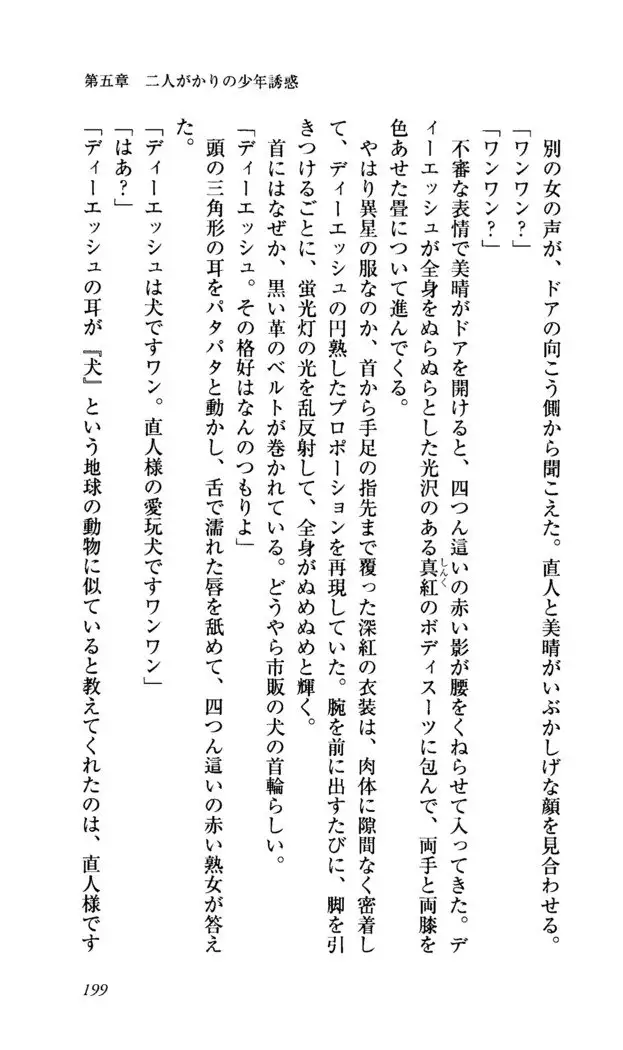 第五章　二人がかりの少年誘惑
別の女の声が、ドアの向こう側から聞こえた。直人と美晴がいぶかしげな顔を見合わせる。
「ワンワン?」
「ワンワン?」
不審な表情で美晴がドアを開けると、四つん這いの赤い影が腰をくねらせて入ってきた。デ
ィーエッシュが全身をぬらぬらとした光沢のある真紅のボディスーツに包んで、両手と両膝を
しんく
色あせた畳について進んでくる。
やはり異星の服なのか、首から手足の指先まで覆った深紅の衣装は、肉体に隙間なく密着し
て、ディーエッシュの円熟したプロポーションを再現していた。腕を前に出すたびに、脚を引
きつけるごとに、蛍光灯の光を乱反射して、全身がぬめぬめと輝く。
首にはなぜか、黒い革のベルトが巻かれている。どうやら市販の犬の首輪らしい。
「ディーエッシュ。その格好はなんのつもりよ」
頭の三角形の耳をパタパタと動かし、舌で濡れた唇を舐めて、四つん這いの赤い熟女が答え
た。
「ディーエッシュは犬ですワン。直人様の愛玩犬ですワンワン」
「はあ?」
「ディーエッシュの耳が『犬』という地球の動物に似ていると教えてくれたのは、直人様です
199